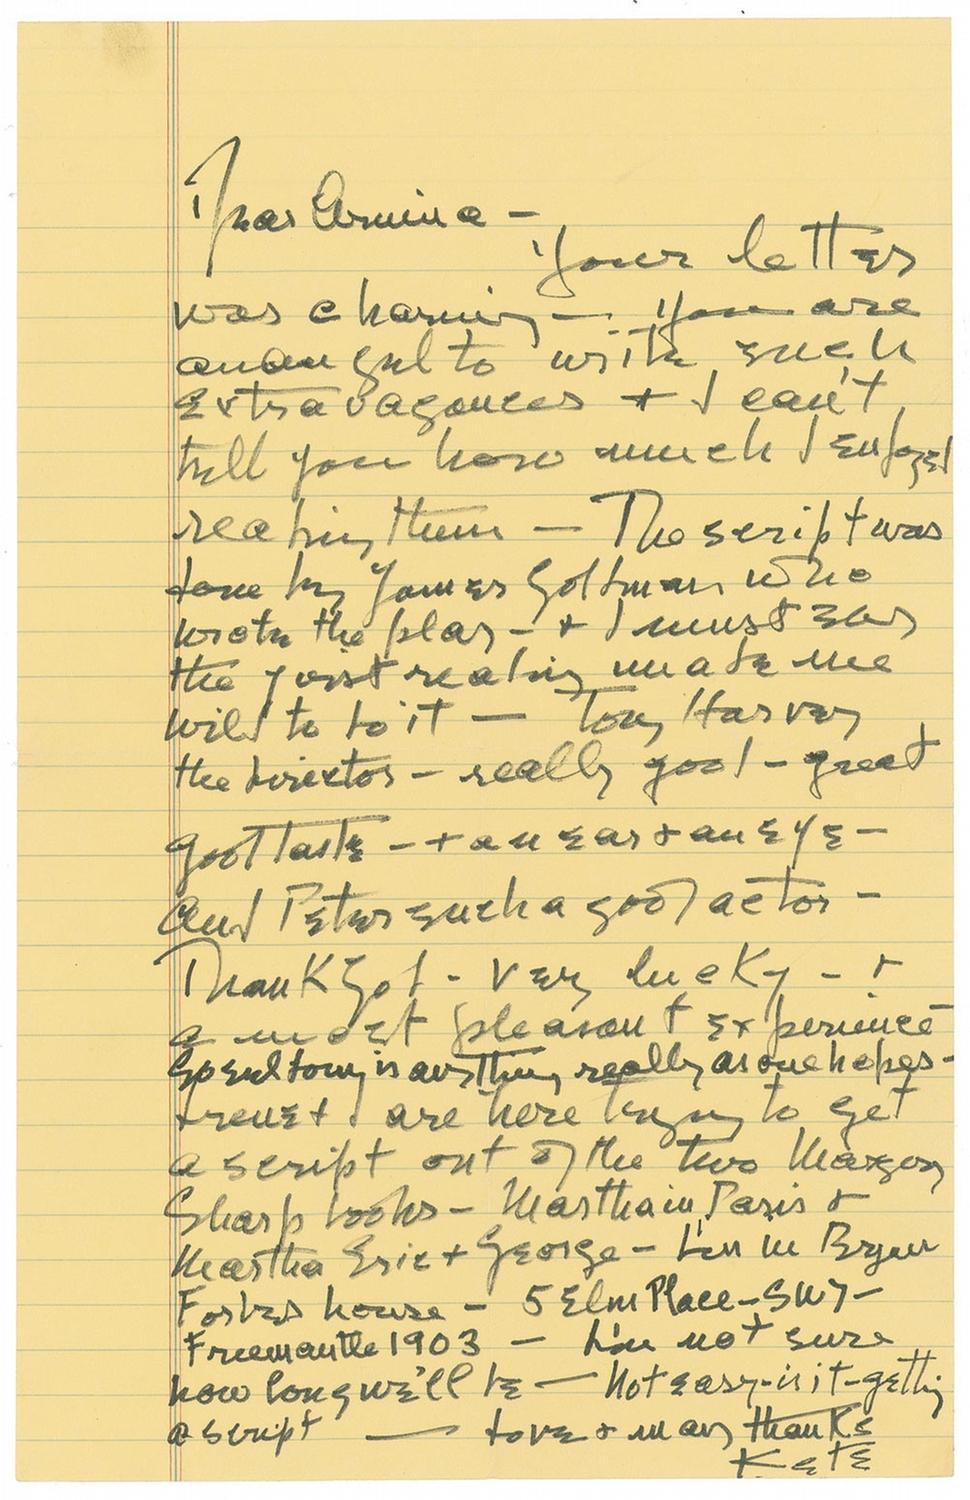 Dear Armina —
Your letter
was charming — You are
an angel to write such
extravagances + I can't
tell you how much I enjoyed
reading them — The script was
done by James Goldman who
wrote the play — + I must say
the first reading made me
wild to do it — Tony Harvey
the director — really good — great
good taste — + an ear + an eye —
And Peter such a good actor —
Thank God — Very lucky — +
a most pleasant experience
is anything really as one hopes —
are here trying to get
a script out of the two Margery
Sharp books — Martha in Paris +
Martha Eric + George — I'm in Bryan
Forbes house — 5 Elm Place — SW7 —
Freemantle 1903 — I'm not sure
how long we'll be — Not easy — is it — getting
a script — Love + many thanks
Kate